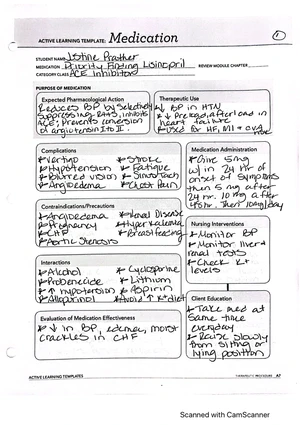 ①
ACTIVE LEARNING TEMPLATE: Medication
STUDENT NAME Justine Prather
MEDICATION Priority Finding Lisinopril REVIEW MODULE CHAPTER
CATEGORY CLASS ACE Inhibitors
PURPOSE OF MEDICATION
Expected Pharmacological Action
Reduces BP by selectively
suppressing RAAS, inhibits
ACE; prevents conversion
of angiotensin I to II.
Therapeutic Use
↓ BP in HTN
* ↓ Preload, afterload in
heart failure
* Used for HF, MI + CVA
Complications
* Vertigo
* Hypotension
* Blurred vision
* Angioedema
* Stroke
* Fatigue
* Chest Pain
Medication Administration
* Give 5mg
in 24 hr of
onset of symptoms
then 5 mg after
24 hr. 10 mg after
48 hr then 10mg/day
Contraindications/Precautions
* Angioedema
* Pregnancy
* CHF
* Aortic Stenosis
* Renal Disease
* Hyperkalemia
* Breastfeeding
Nursing Interventions
* Monitor BP
* Monitor liver +
renal tests
* Check K+
levels
Interactions
* Alcohol
* Probenecide
* ↑ Hypotension
* Allopurinol
* Cyclosporine
* Lithium
* Aspirin
* Avoid ↑ K+ diet
Client Education
* Take med at
same time
everyday
* Raise slowly
from sitting or
lying position
Evaluation of Medication Effectiveness
* ↓ in BP, edema, moist
crackles in CHF
ACTIVE LEARNING TEMPLATES
THERAPEUTIC PROCEDURE A7
Scanned with CamScanner